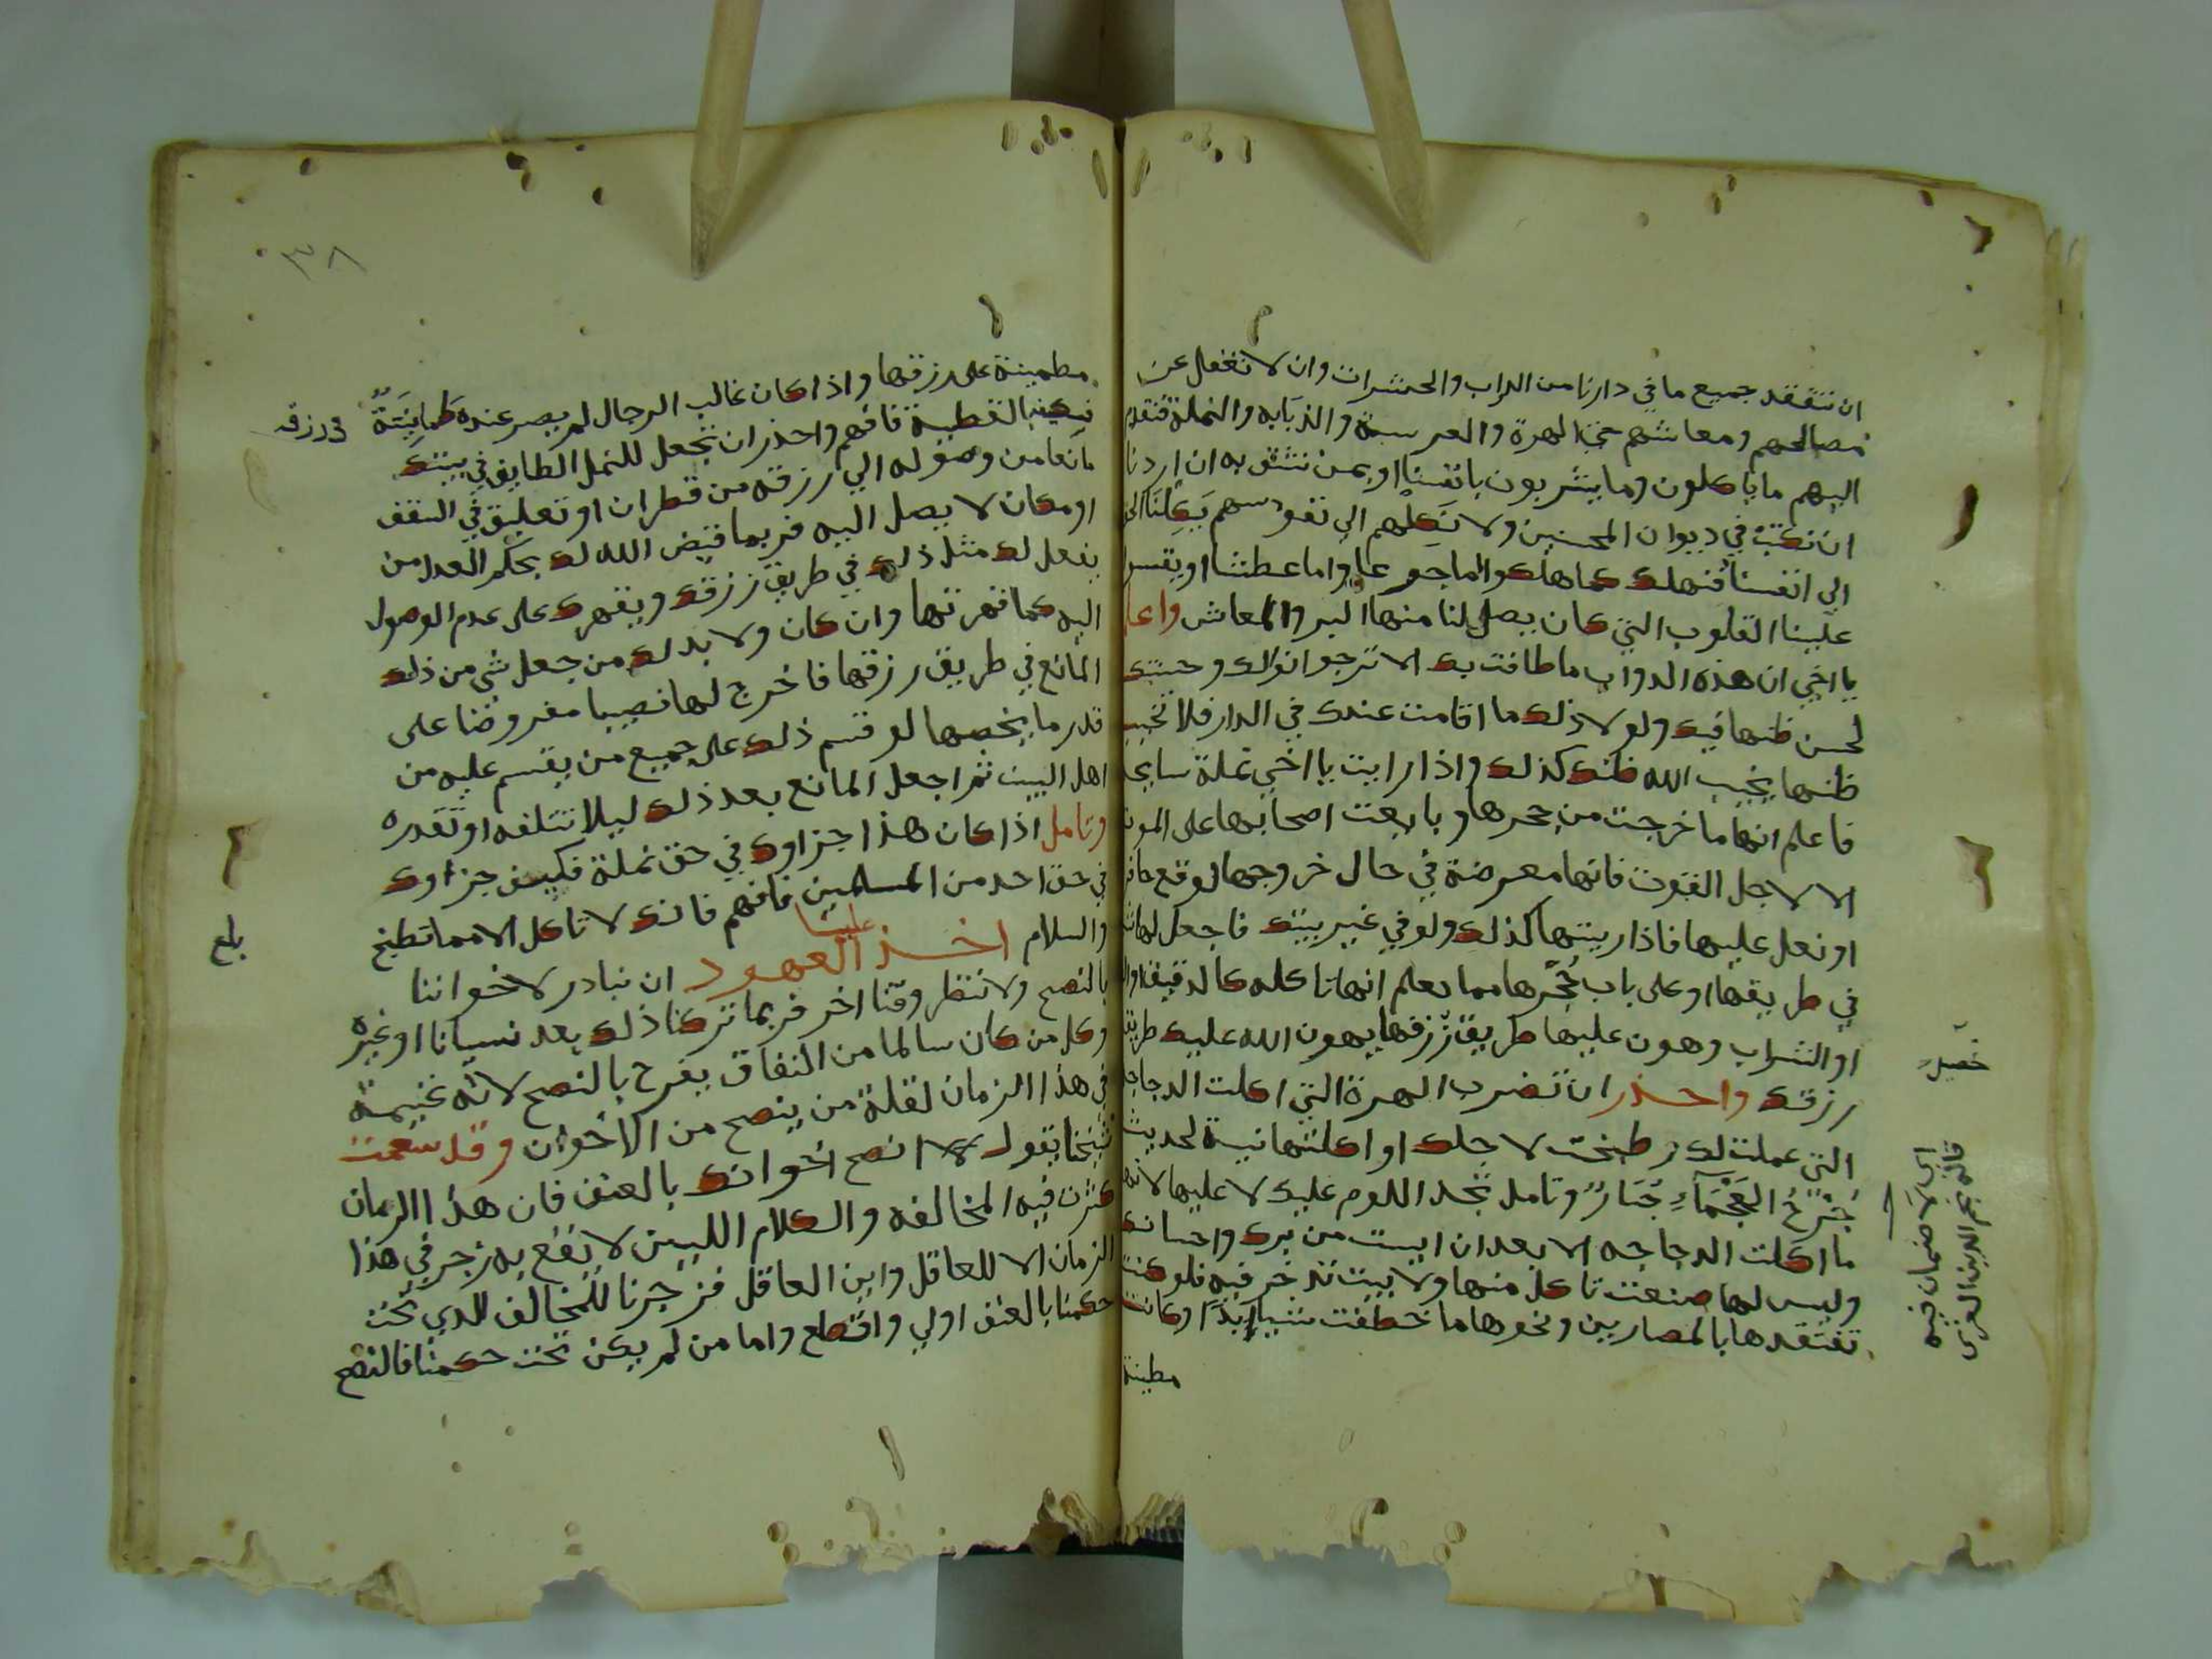 ان نتفقد جميع ما في دارنا من الدواب والحشرات وان لا نغفل عن
مصالحهم ومعاشهم حتي الهرة والعرسة والذبابه والنملة فنقدم
اليهم ما ياكلون وما يشربون بانفسنا او بمن نثق به ان اردنا
ان نكتب في ديوان المحسنين ولا نكلهم الي نفوسهم يكلنا الحق
الي انفسنا فنهلك كما هلكوا اما جوعا واما عطشا او يقسي
علينا القلوب التي كان يصل لنا منها البر والمعاش واعلم
يا اخي ان هذه الدواب ما طافت بك الا ترجوا نوالك وحسنتك
لحسن ظنها فيك ولولا ذلك ما اقامت عندك في الدار فلا تخيب
ظنها يخيب الله ظنك كذلك واذا رايت يا اخي نملة سايحة
فاعلم انها ما خرجت من جحرها وبايعت اصحابها على الموت
الا لاجل القوت فانها معرضة في حال خروجها لوقع حافر
او نعل عليها فاذا رايتها كذلك ولو في غير بيتك فاجعل لها
في طريقها او على باب جحرها مما يعلم انها تاكله كالدقيق
او الشراب وهون عليها طريق رزقها يهون الله عليك طريق
رزقك واحذر ان تضرب الهرة التي اكلت الدجاجة
التي عملت لك وطبخت لاجلك او اكلتها نية لحديث
جرح العجماء جبار وتامل تجد اللوم عليك لا عليها لانها
ما اكلت الدجاجه الا بعد ان ايست من برك واحسانك
وليس لها صنعت تاكل منها ولا بيت تدخر فيه فلو كنت
تفتقدها بالمصارين ونحوها ما خطفت شيا ابدا وكانت
مطمينة
اي لا ضمان فيه
قاله نجم الدين الغزي
٣٨
مطمينة على رزقها واذا كان غالب الرجال لم يصر عنده طمانينة
في رزقه
فكيف بالقطيطة فافهم واحذر ان تجعل للنمل الطايف في بيتك
مانعا من وصوله الي رزقه من قطران او تعليق في السقف
او مكان لا يصل اليه فربما قيض الله لك بحكم العدل من
يفعل لك مثل ذلك في طريق رزقك ويقهرك على عدم الوصول
اليه كما قهرتها وان كان ولا بد لك من جعل شي من ذلك
المانع في طريق رزقها فاخرج لها نصيبا مفروضا على
قدر ما يخصها لو قسم ذلك على جميع من يقسم عليه من
اهل البيت ثم اجعل المانع بعد ذلك ليلا تتلفه او تقدره
وتامل اذا كان هذا جزاوك في حق نملة فكيف جزاوك
في حق احد من المسلمين فافهم فانك لا تاكل الا مما تطبخ
بلغ
والسلام اخذ علينا العهود ان نبادر لاخواننا
بالنصح ولا ننتظر وقتا اخر فربما تركنا ذلك بعد نسيانا او غيره
وكل من كان سالما من النفاق يفرح بالنصح لانه غنيمة
في هذا الزمان لقلة من ينصح من الاخوان وقد سمعت
شيخنا يقول لا انصح اخوانك بالعنف فان هذا الزمان
كثرت فيه المخالفه والكلام اللين لا يقع به زجر في هذا
الزمان الا للعاقل واين العاقل فزجرنا للمخالف الذي تحت
حكمنا بالعنف اولي واقطع واما من لم يكن تحت حكمنا فالنصح